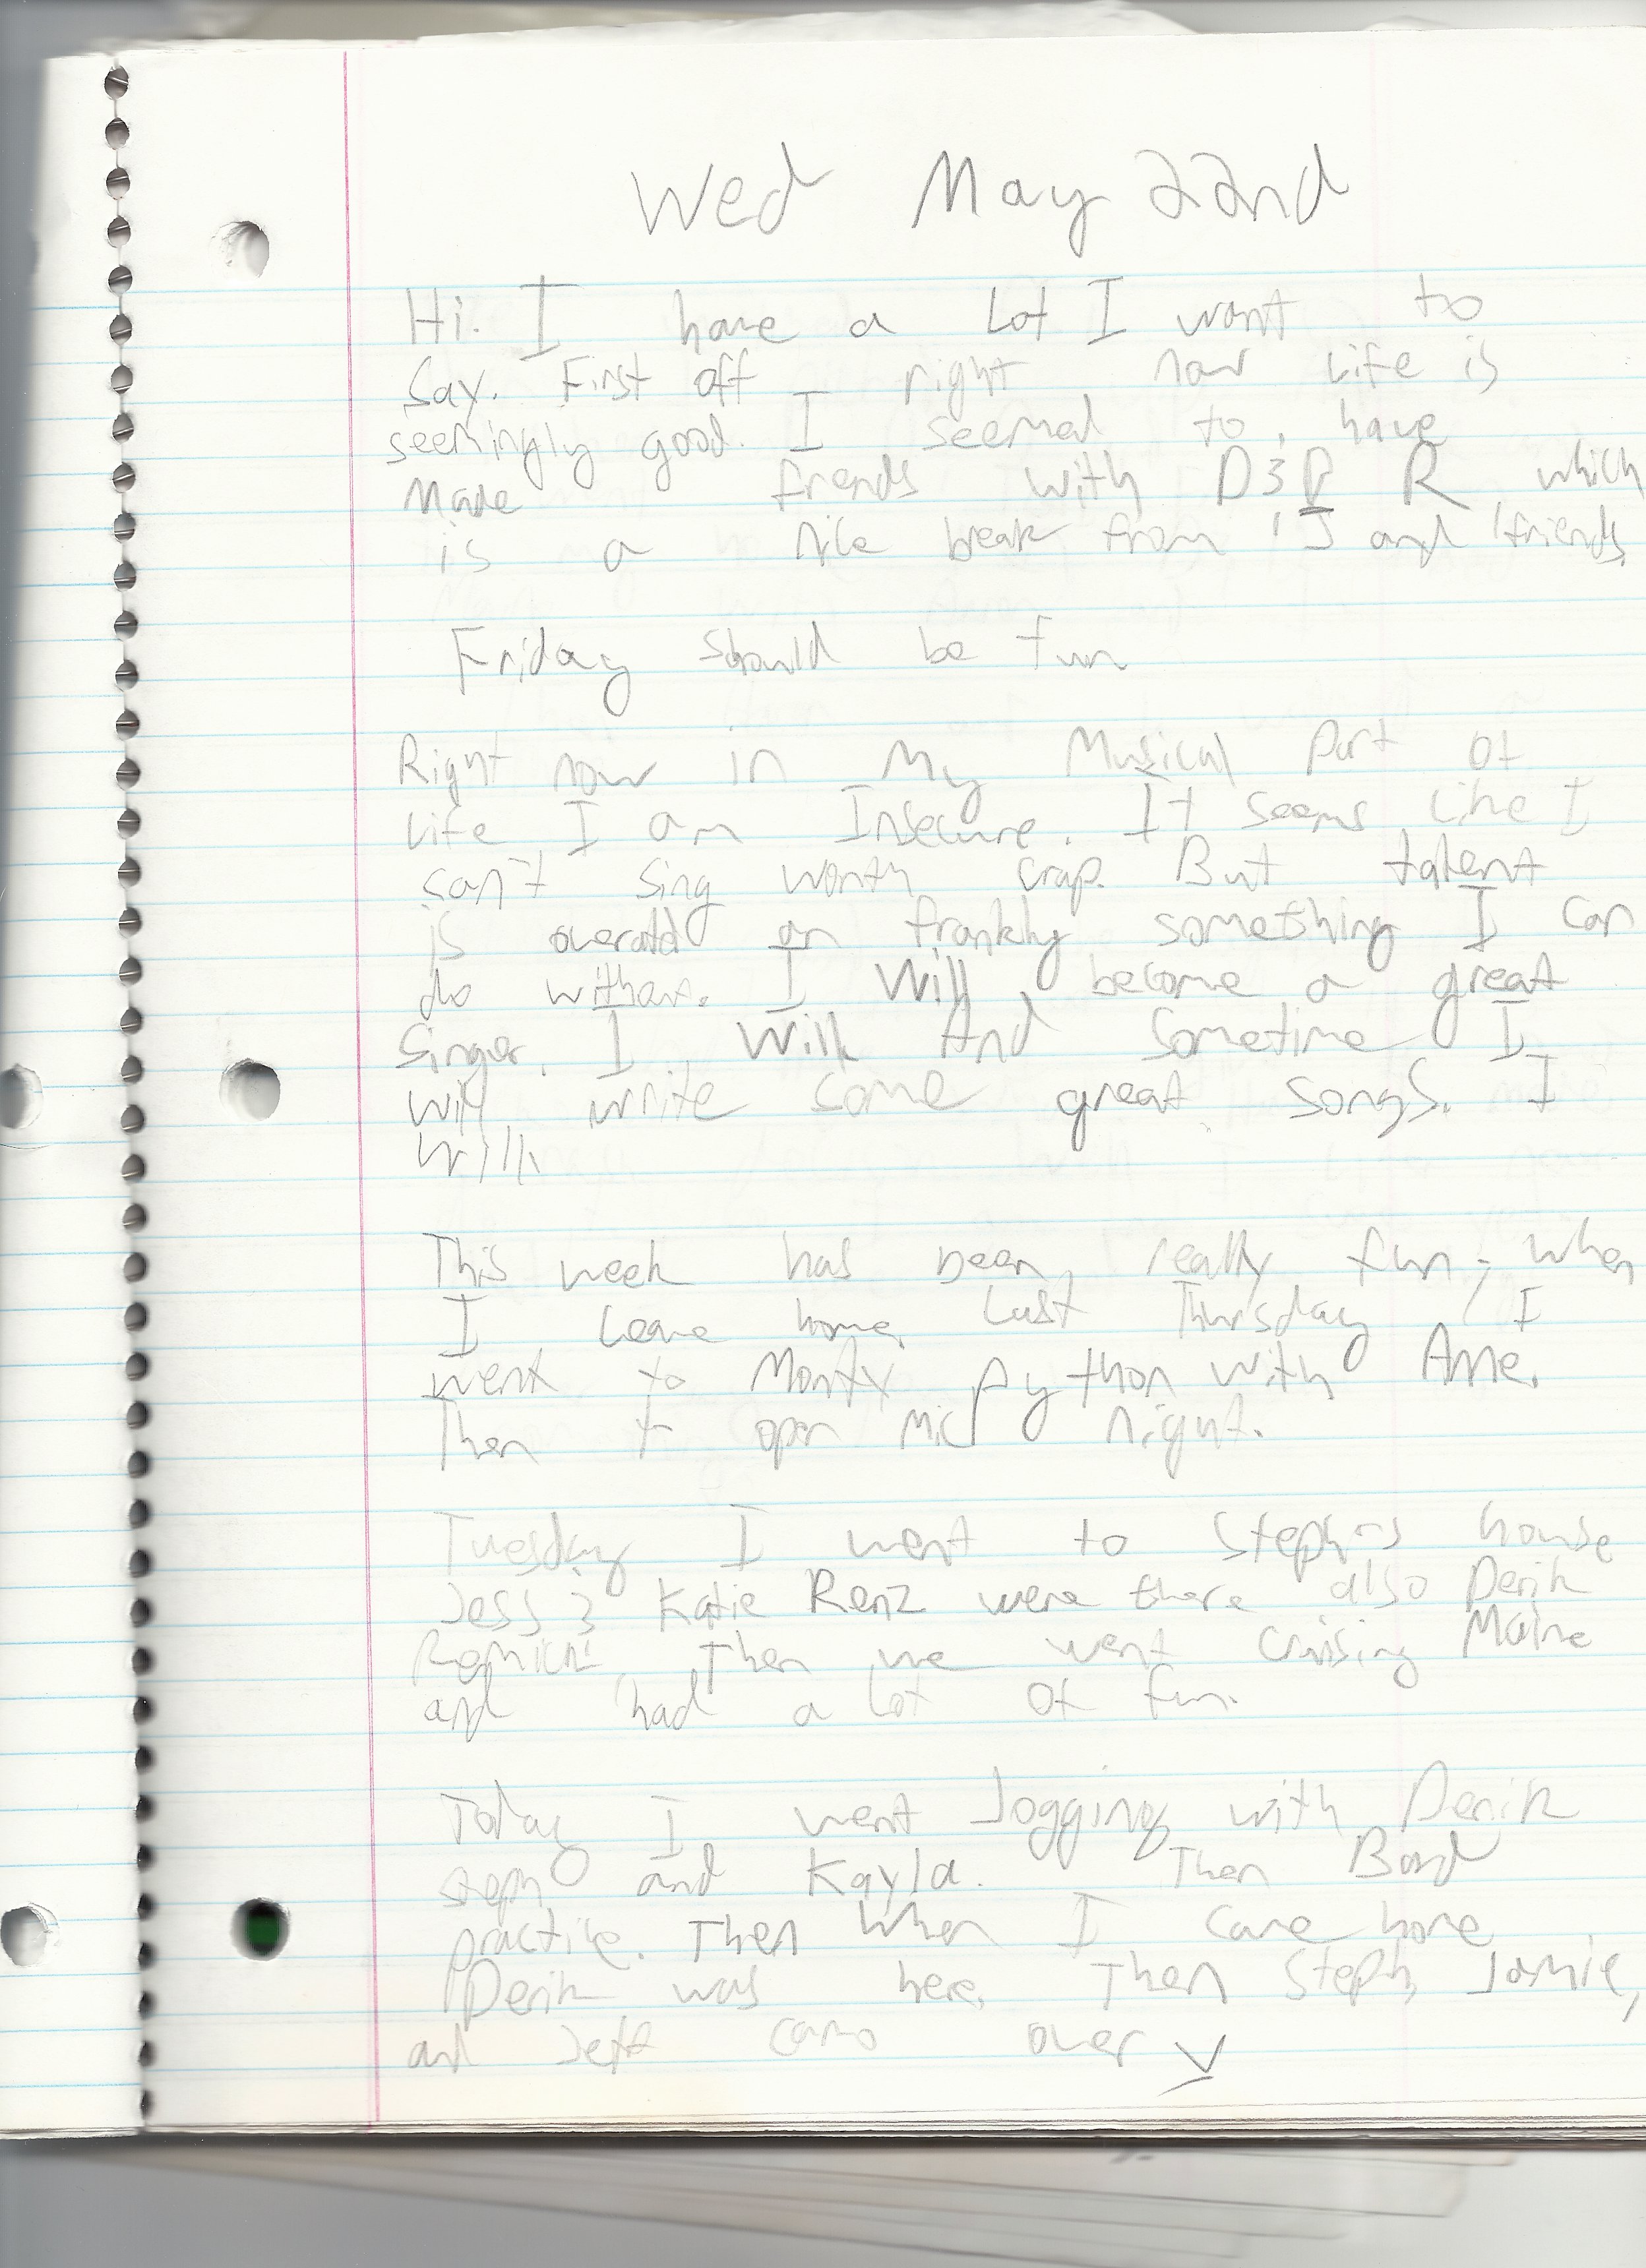 Wed May 22nd
Hi. I have a Lot I want to
Say. First off right now Life is
seemingly good. I seemed to have
made friends with D & R which
is a nice break from "J and "friends
Friday should be fun
Right now in My Musical part of
Life I am Insecure. It seems like I
can't sing worth crap. But talent
is overated an frankly something I can
do without. I Will become a great
Singer. I Will And Sometime I
will write some great songs. I
Will
This week has been really fun; when
I Leave home. Last Thursday I
went to Monty python with
Then to open mic night.
Tuesday I went to Steph's house
Jess & Katie Renz were there also Derik
Then we went cruising Maine
and had a Lot of fun.
Today I went Jogging with Derik
steph and Kayla. Then Band
practice. Then When I came home
Derik was here. Then Steph, Jamie,
and Jeff came over